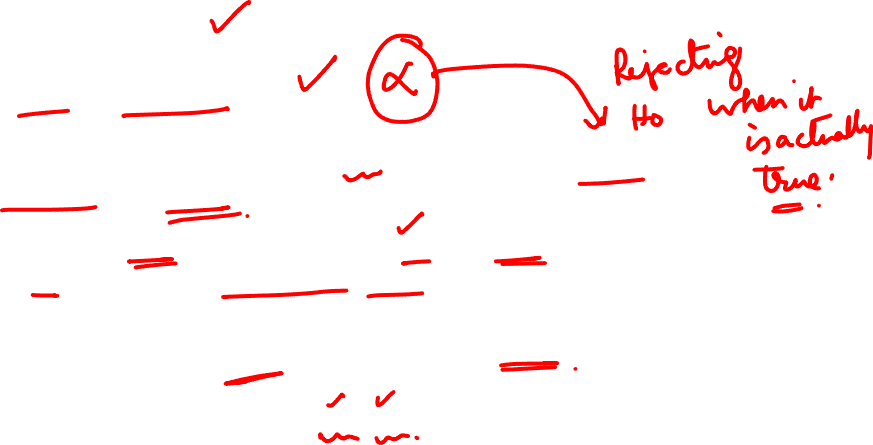 α
Rejecting
H0 when it
is actually
true.